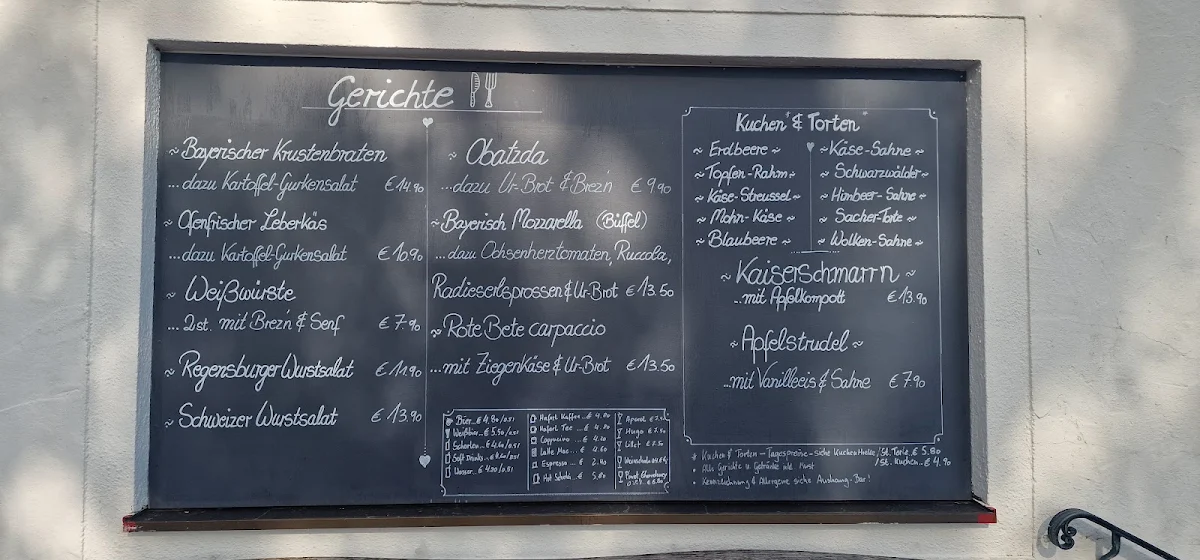 Gerichte
~ Bayerischer Krustenbraten
...dazu Kartoffel-Gurkensalat €14.90
~ Ofenfrischer Leberkäs
...dazu Kartoffel-Gurkensalat €10.90
~ Weißwürste
... 2st. mit Brez'n & Senf €7.90
~ Regensburger Wurstsalat €11.90
~ Schweizer Wurstsalat €13.90
~ Obatzda
...dazu Ur-Brot & Brez'n €9.90
~ Bayerisch Mozzarella (Büffel)
...dazu Ochsenherztomaten, Ruccola,
Radieserlsprossen & Ur-Brot €13.50
~ Rote Bete carpaccio
...mit Ziegenkäse & Ur-Brot €13.50
Bier...€4.80/0.5l
Weißbier...€5.50/0.5l
Schorlen...€4.60/0.5l
Soft Drinks
Wasser...€4.00/0.5l
Haferl Kaffee...€
Haferl Tee...€
Cappucino...€
Latte Mac...€
Espresso...€
Hot Schoko...€
Aperol
Hugo
Lillet
Kuchen & Torten
~ Erdbeere ~
~ Topfen-Rahm ~
~ Käse-Streussel ~
~ Mohn-Käse ~
~ Blaubeere ~
~ Käse-Sahne ~
~ Schwarzwälder ~
~ Himbeer-Sahne ~
~ Sacher-Torte ~
~ Wolken-Sahne ~
~ Kaiserschmarrn ~
...mit Apfelkompott €13.90
~ Apfelstrudel ~
...mit Vanilleeis & Sahne €7.90
* Kuchen & Torten - Tagespreise - siehe Kuchentheke /St. Torte € 5.80
/St. Kuchen..€ 4.90
• Alle Gerichte u. Getränke inkl. Mwst
• Kennzeichnung & Allergene siehe Aushang-Bar!